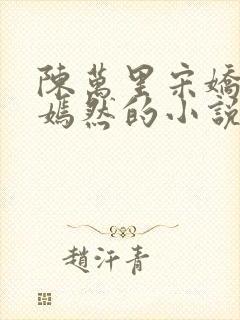 陳萬里宋嬌
嫣然的小說
趙汗青